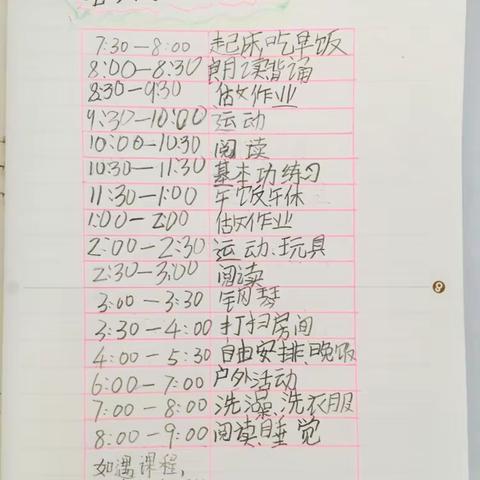 7:30—8:00 起床吃早饭
8:00—8:30 朗读背诵
8:30—9:30 做作业
9:30—10:00 运动
10:00—10:30 阅读
10:30—11:30 基本功练习
11:30—1:00 午饭午休
1:00—2:00 做作业
2:00—2:30 运动、玩具
2:30—3:00 阅读
3:00—3:30 钢琴
3:30—4:00 打扫房间
4:00—5:30 自由安排、晚饭
6:00—7:00 户外活动
7:00—8:00 洗澡、洗衣服
8:00—9:00 阅读、睡觉
如遇课程，